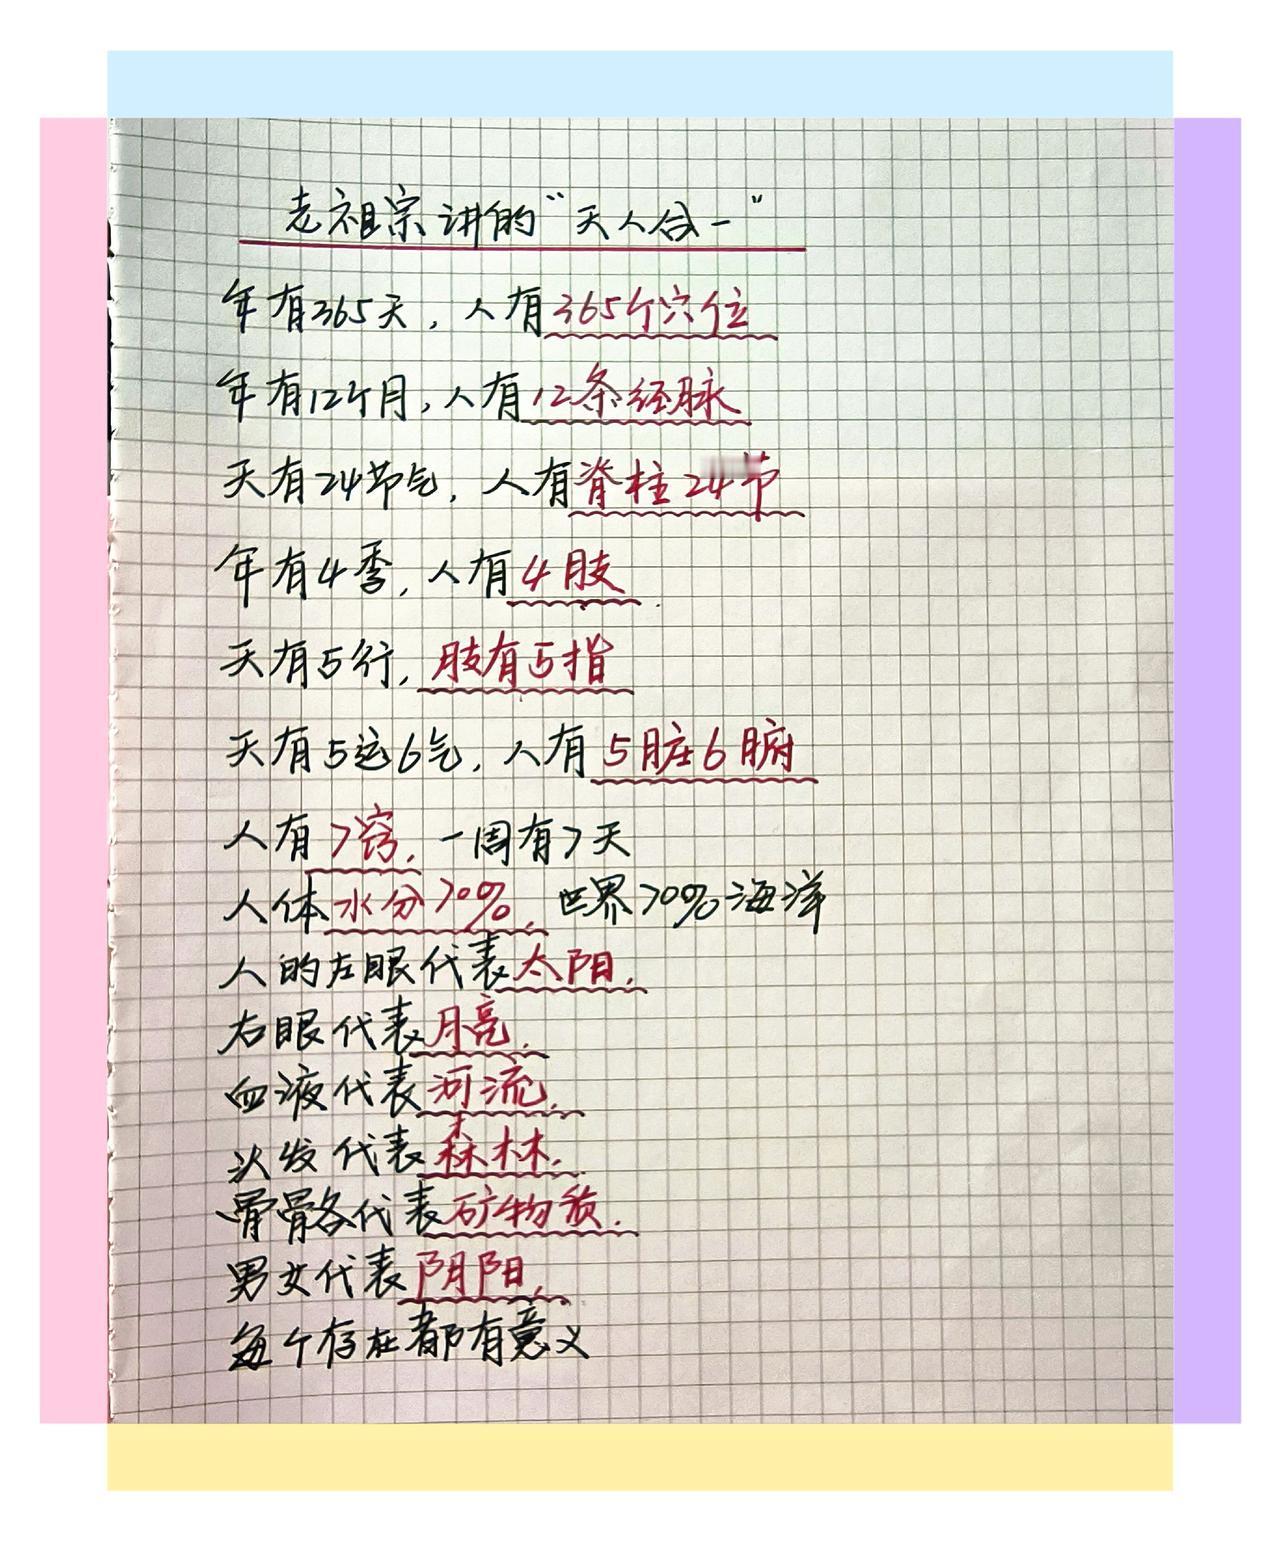 老祖宗讲的“天人合一”
年有365天，人有365个穴位
年有12个月，人有12条经脉
天有24节气，人有脊柱24节
年有4季，人有4肢
天有5行，肢有5指
天有5运6气，人有5脏6腑
人有7窍，一周有7天
人体水分70%，世界70%海洋
人的左眼代表太阳，
右眼代表月亮，
血液代表河流，
头发代表森林，
骨骼代表矿物质，
男女代表阴阳，
每个存在都有意义